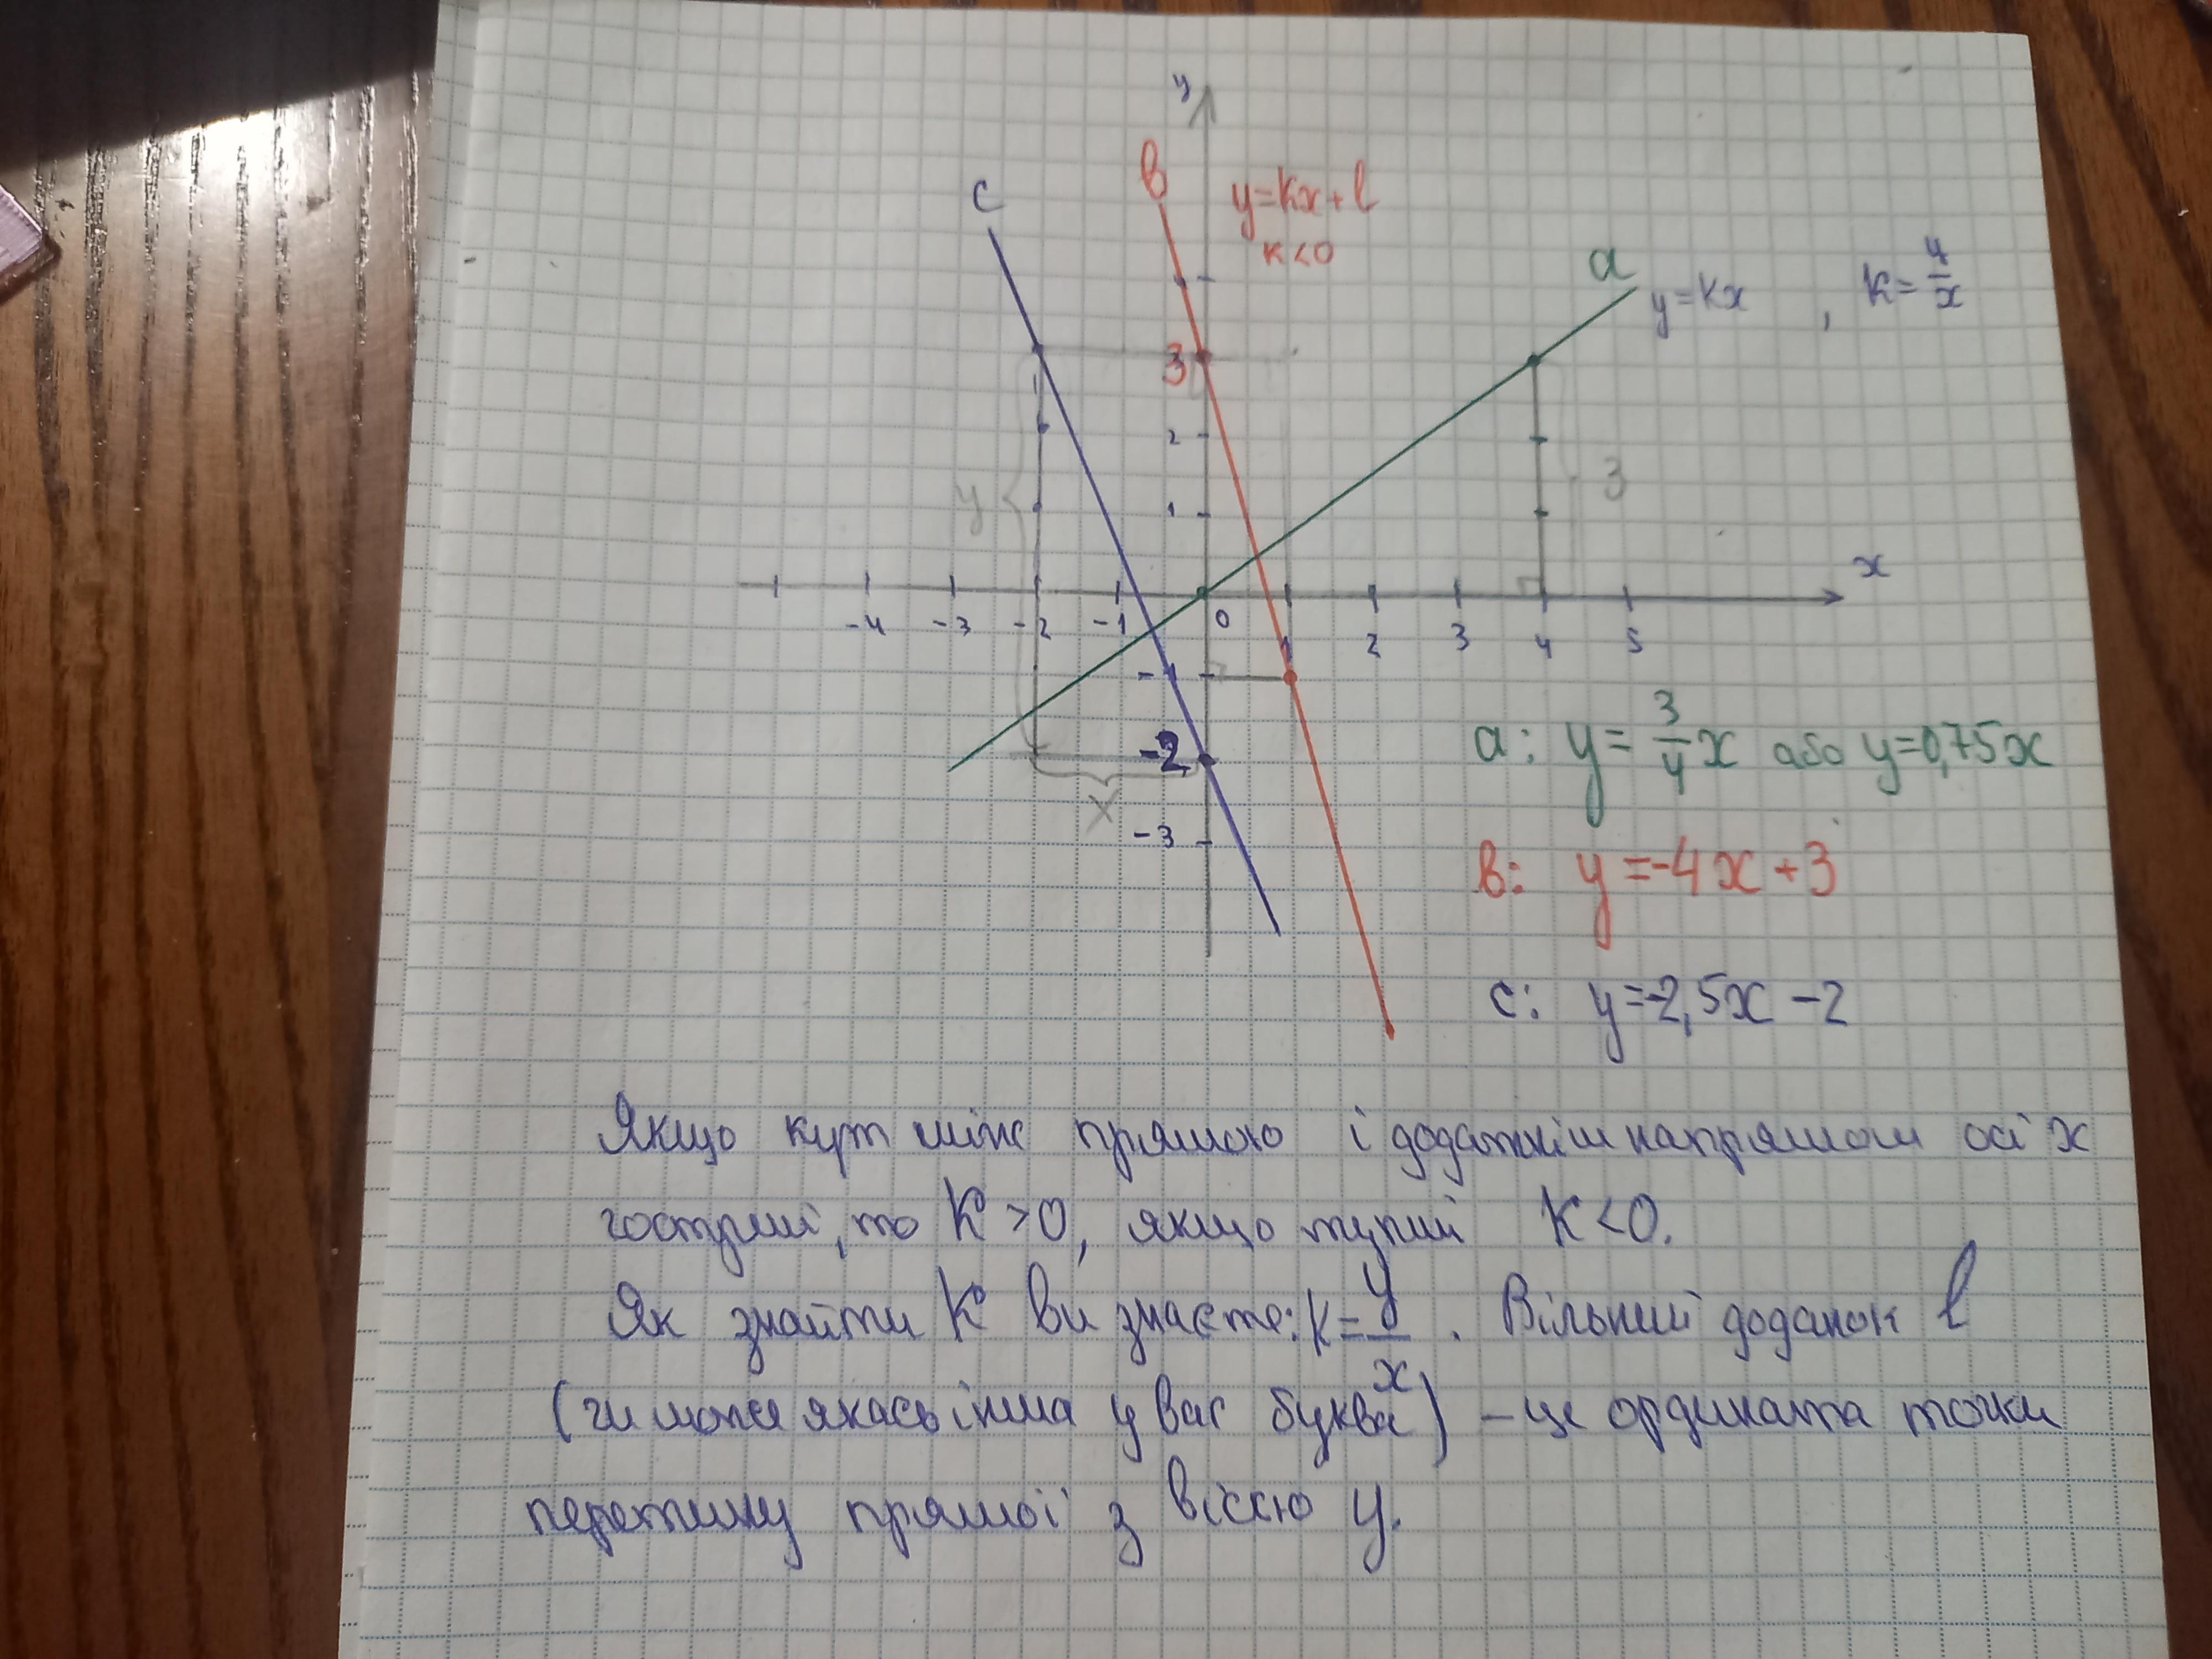 y
c
в
y=kx+l
k<0
a
y=kx , k=y/x
3
2
1
y
3
x
-4 -3 -2 -1 0 1 2 3 4 5
-1
-2
x
-3
a: y=3/4x або y=0,75x
в: y=-4x+3
c: y=-2,5x-2
Якщо кут між прямою і додатнім напрямом осі x
гострий, то K>0, якщо тупий K<0.
Як знайти K ви знаєте: k=y/x. Вільний доданок l
(чи може якась інша у вас буква) – це ордината точки
перетину прямої з віссю y.